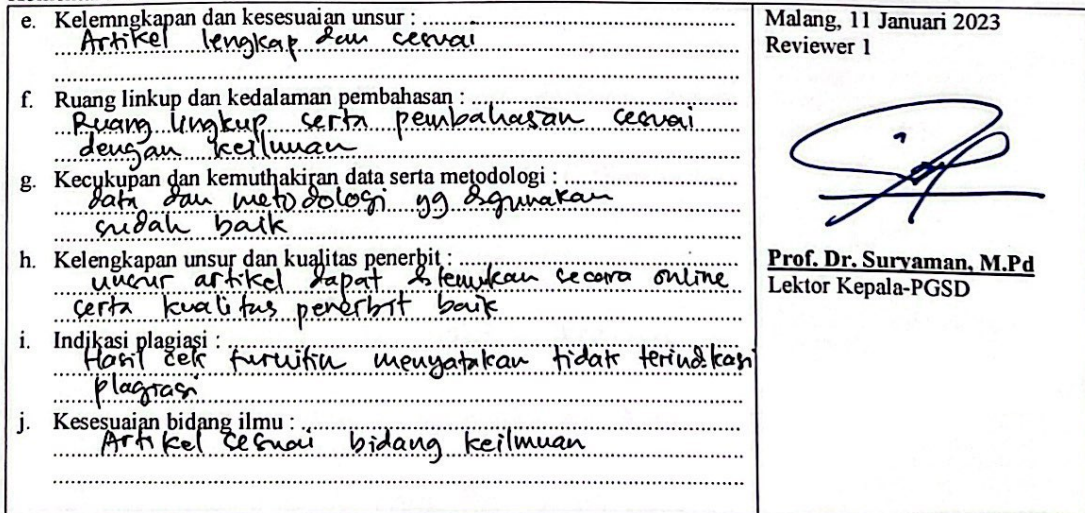 e. Kelemngkapan dan kesesuaian unsur :
Artikel lengkap dan sesuai
f. Ruang linkup dan kedalaman pembahasan :
Ruang lingkup serta pembahasan sesuai
dengan keilmuan
g. Kecukupan dan kemuthakiran data serta metodologi :
data dan metodologi yg digunakan
sudah baik
h. Kelengkapan unsur dan kualitas penerbit :
unsur artikel dapat ditemukan secara online
serta kualitas penerbit baik
i. Indikasi plagiasi :
Hasil cek turnitin menyatakan tidak terindikasi
plagiasi
j. Kesesuaian bidang ilmu :
Artikel sesuai bidang keilmuan
Malang, 11 Januari 2023
Reviewer 1
Prof. Dr. Suryaman, M.Pd
Lektor Kepala-PGSD